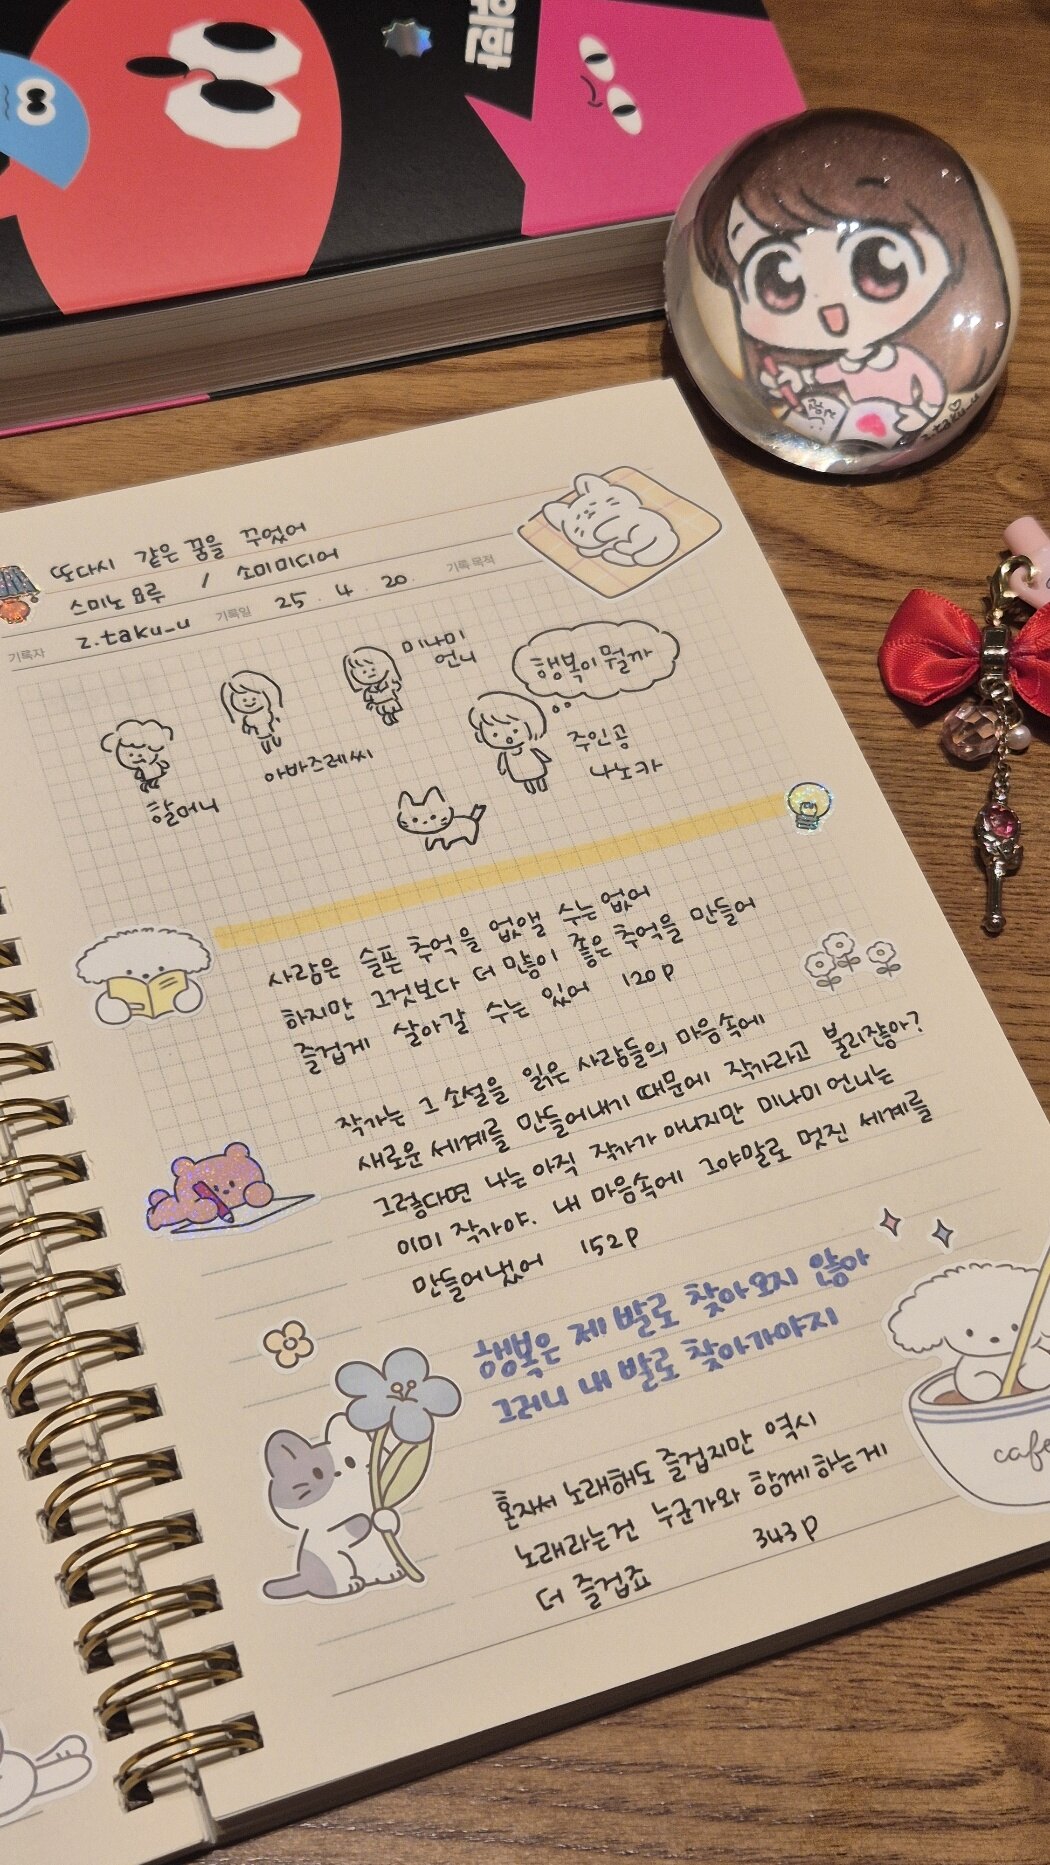 위한
z.taku_u
또다시 같은 꿈을 꾸었어
스미노 요루 / 소미미디어
기록자 z.taku_u 기록일 25. 4. 20. 기록 목적
미나미
언니
행복이 뭘까
아바즈레씨
주인공
나노카
할머니
사람은 슬픈 추억을 없앨 수는 없어
하지만 그것보다 더 많이 좋은 추억을 만들어
즐겁게 살아갈 수는 있어 120p
작가는 그 소설을 읽은 사람들의 마음속에
새로운 세계를 만들어내기 때문에 작가라고 불리잖아?
그렇다면 나는 아직 작가가 아니지만 미나미 언니는
이미 작가야. 내 마음속에 그야말로 멋진 세계를
만들어냈어 152p
행복은 제 발로 찾아오지 않아
그러니 내 발로 찾아가야지
cafe
혼자서 노래해도 즐겁지만 역시
노래라는건 누군가와 함께 하는게
더 즐겁죠 343p